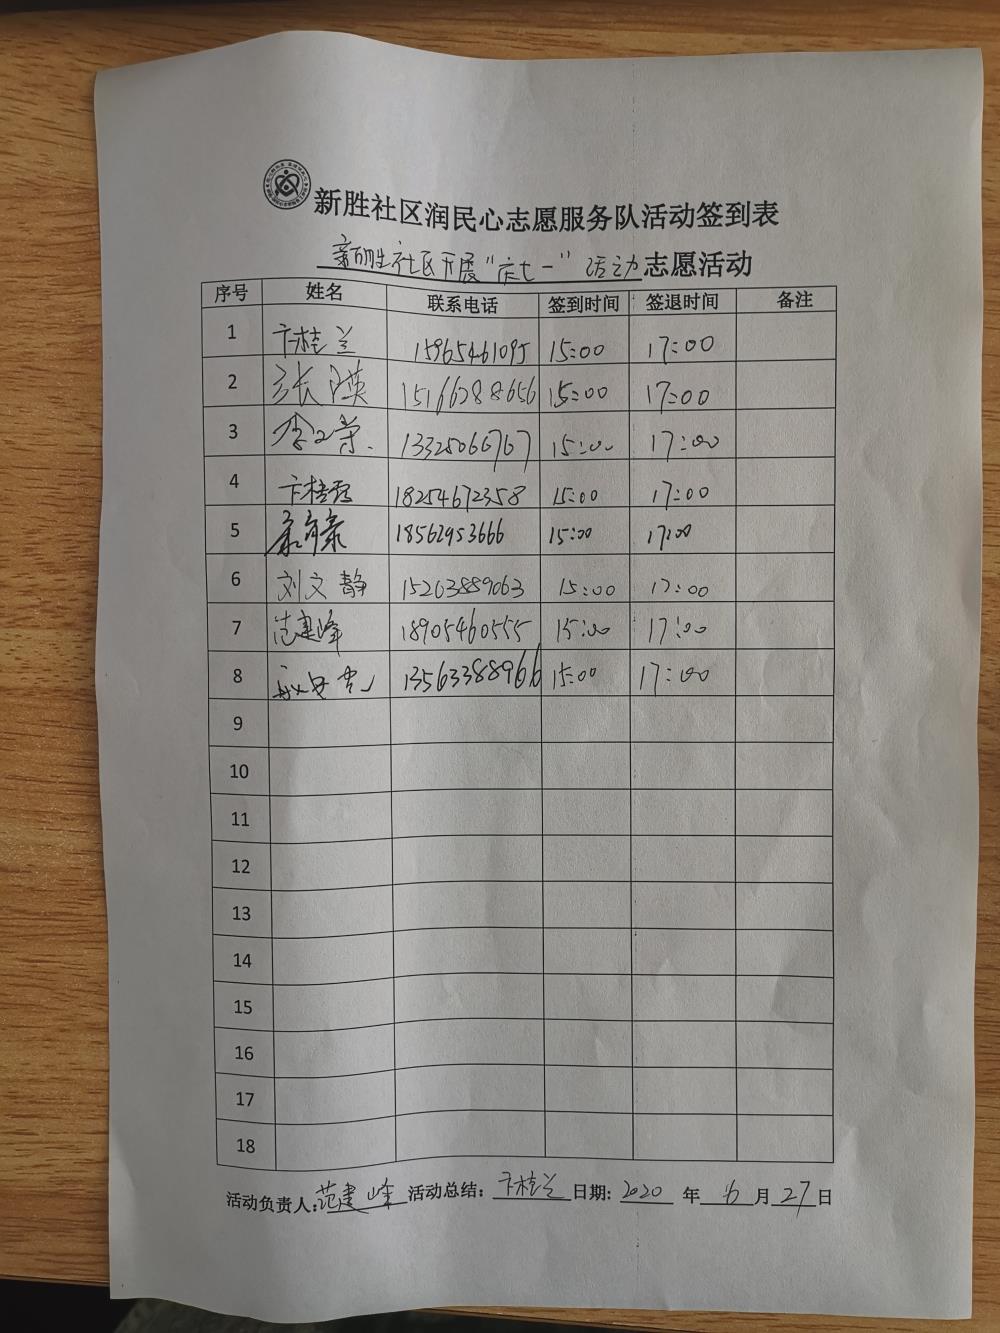 新胜社区润民心志愿服务队活动签到表
新胜社区开展“庆七一”活动志愿活动
序号 姓名 联系电话 签到时间 签退时间 备注
1 卞桂兰 15965461095 15:00 17:00
2 张瑛 15166288656 15:00 17:00
3 13325066767 15:00 17:00
4 卞桂霞 18254672358 15:00 17:00
5 18562953666 15:00 17:00
6 刘文静 15263889063 15:00 17:00
7 范建峰 18905460555 15:00 17:00
8 13563388966 15:00 17:00
9
10
11
12
13
14
15
16
17
18
活动负责人:范建峰 活动总结: 卞桂兰 日期: 2020 年 6 月 27 日